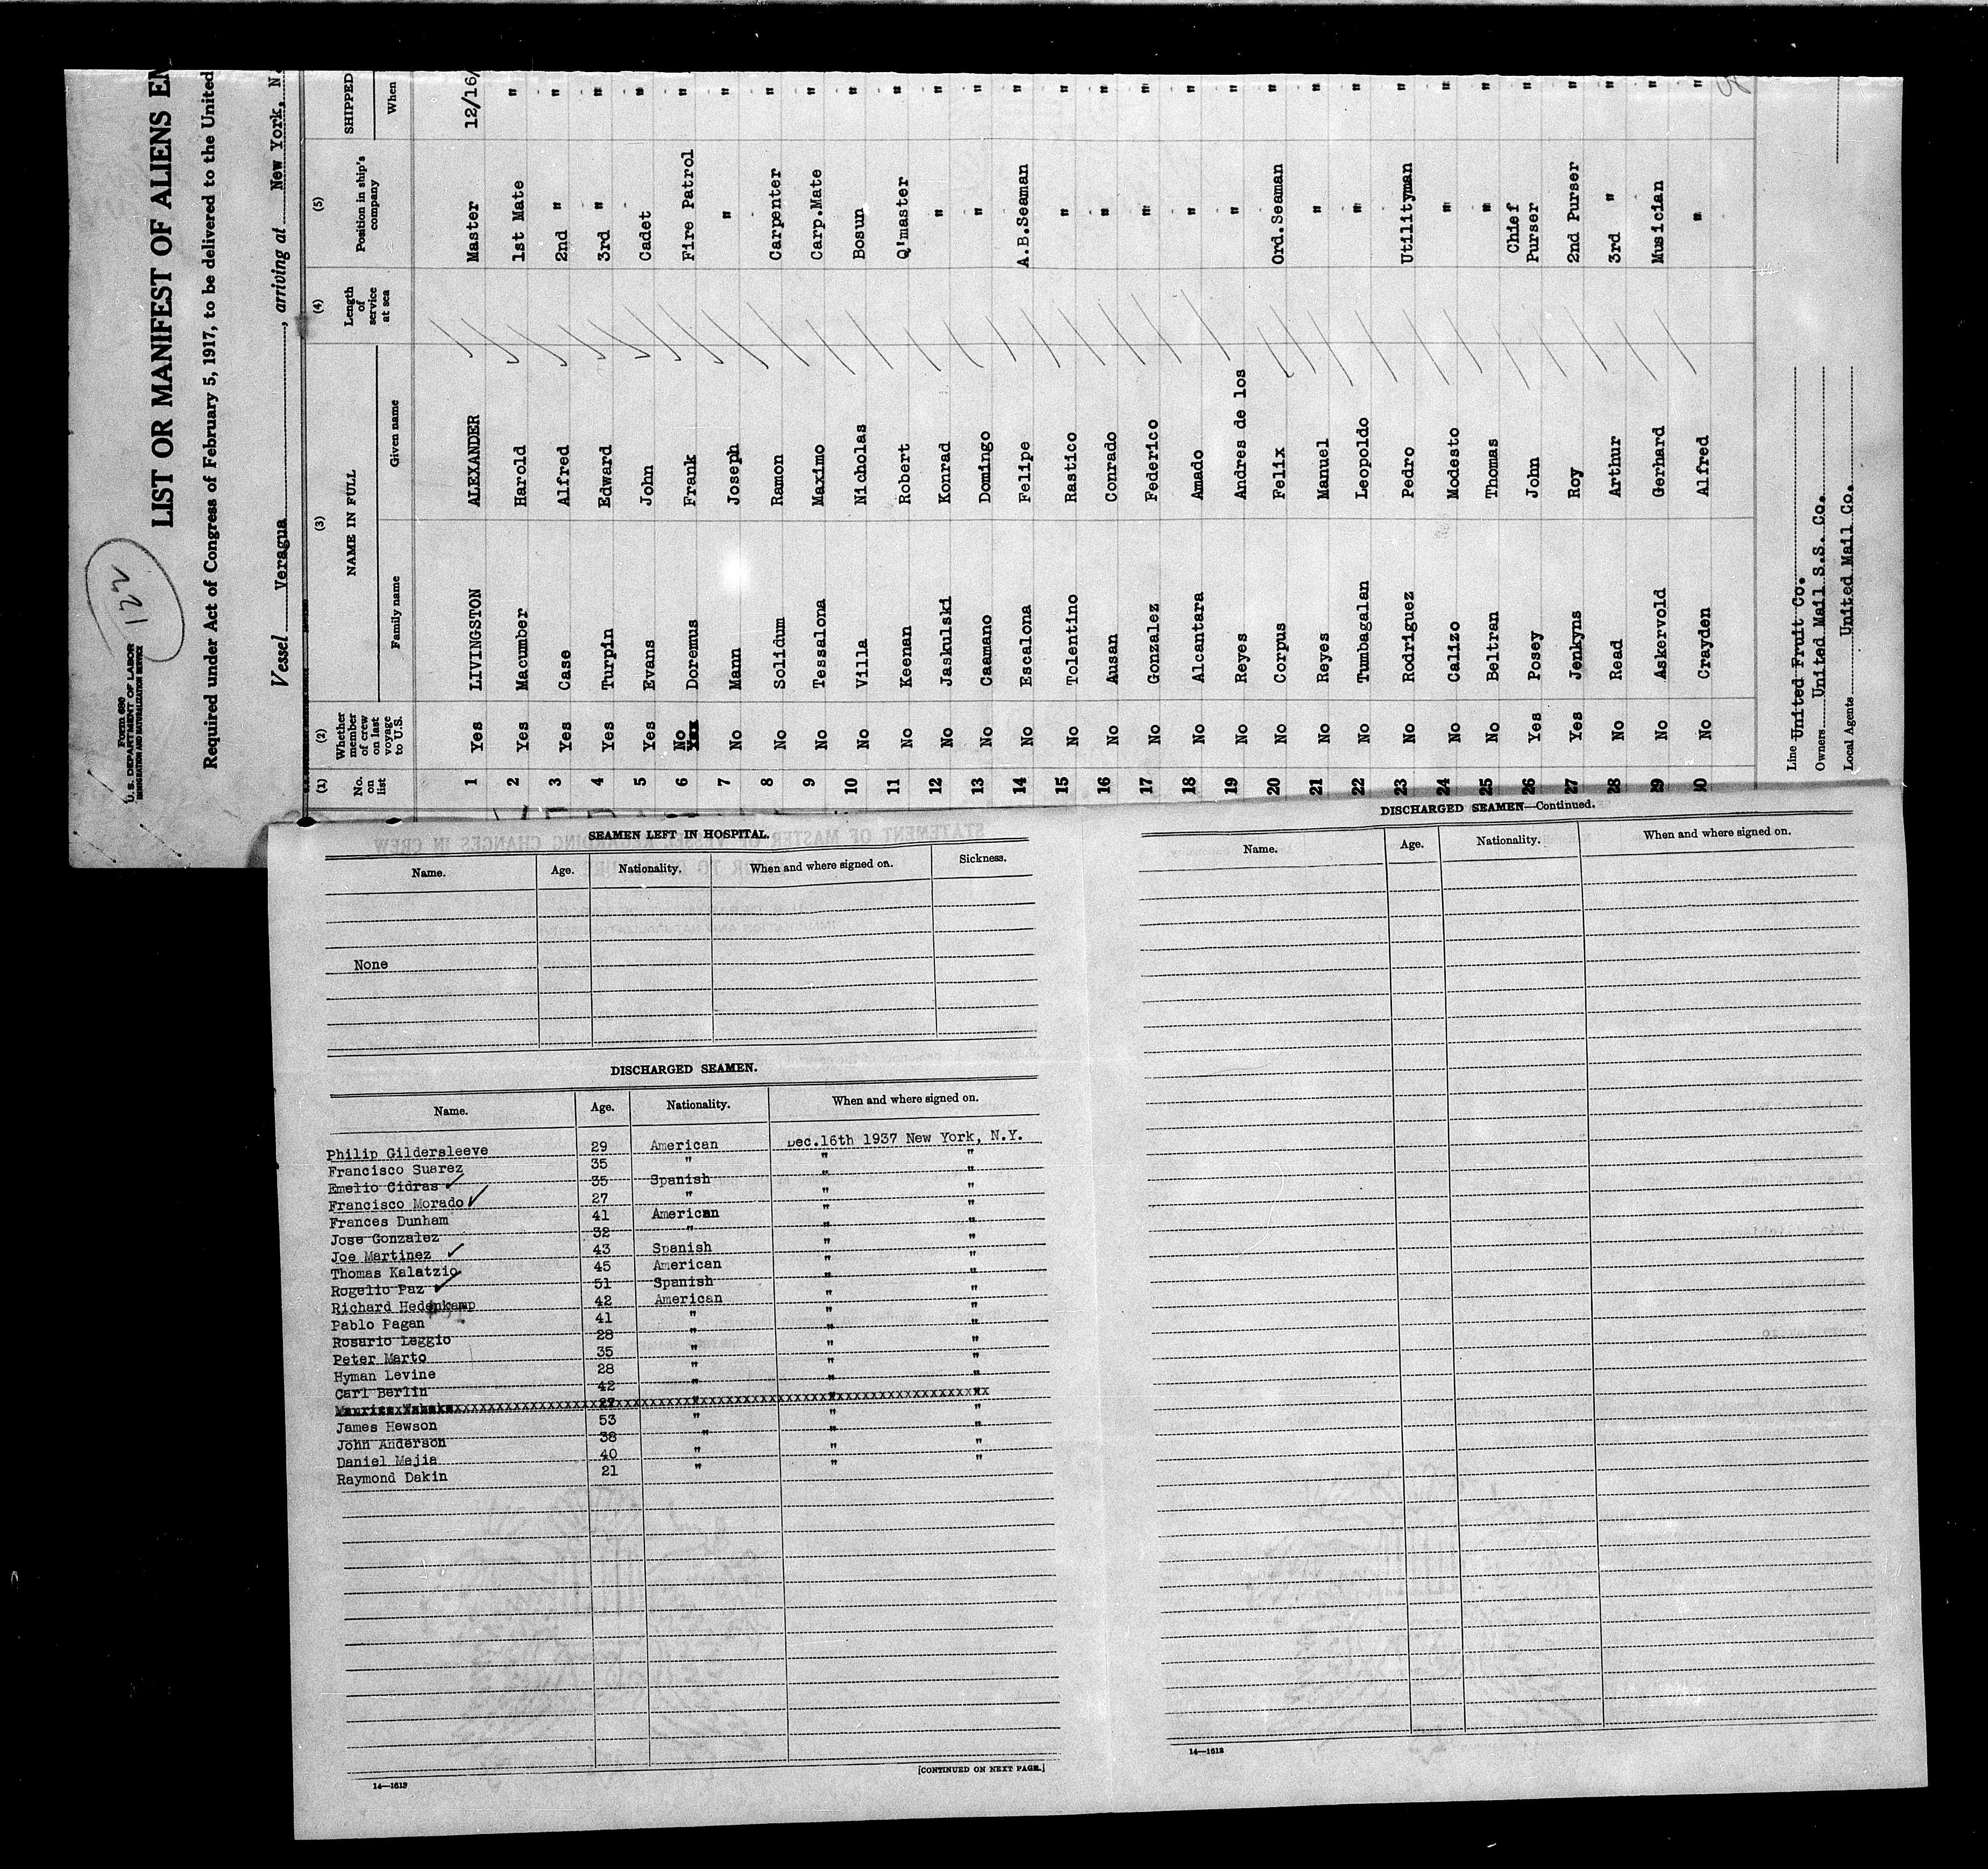 Form 680
U.S. DEPARTMENT OF LABOR
IMMIGRATION AND NATURALIZATION SERVICE
122
LIST OR MANIFEST OF ALIENS EM
Required under Act of Congress of February 5, 1917, to be delivered to the United
Vessel Veragua, arriving at New York, N.
(1) (2) (3) (4) (5)
No. on list Whether member of crew on last voyage to U.S. NAME IN FULL Length of service at sea Position in ship's company SHIPPED
Family name Given name When
1 Yes LIVINGSTON ALEXANDER Master 12/16/
2 Yes Macumber Harold 1st Mate "
3 Yes Case Alfred 2nd " "
4 Yes Turpin Edward 3rd " "
5 Yes Evans John Cadet "
6 No Yes Doremus Frank Fire Patrol "
7 No Mann Joseph " "
8 No Solidum Ramon Carpenter "
9 No Tessalona Maximo Carp.Mate "
10 No Villa Nicholas Bosun "
11 No Keenan Robert Q'master "
12 No Jaskulski Konrad " "
13 No Caamano Domingo " "
14 No Escalona Felipe A.B.Seaman "
15 No Tolentino Rastico " "
16 No Ausan Conrado " "
17 No Gonzalez Federico " "
18 No Alcantara Amado " "
19 No Reyes Andres de los " "
20 No Corpus Felix Ord.Seaman "
21 No Reyes Manuel " "
22 No Tumbagalan Leopoldo " "
23 No Rodriguez Pedro Utilityman "
24 No Calizo Modesto " "
25 No Beltran Thomas " "
26 Yes Posey John Chief Purser "
27 Yes Jenkyns Roy 2nd Purser "
28 No Read Arthur 3rd " "
29 No Askervold Gerhard Musician "
30 No Crayden Alfred " "
Line United Fruit Co.
Owners United Mail S.S. Co.
Local Agents United Mail Co.
SEAMEN LEFT IN HOSPITAL.
Name. Age. Nationality. When and where signed on. Sickness.
None
DISCHARGED SEAMEN.
Name. Age. Nationality. When and where signed on.
Philip Gildersleeve 29 American Dec.16th 1937 New York, N.Y.
Francisco Suarez 35 " " "
Emelio Cidras 35 Spanish " "
Francisco Morado 27 " " "
Frances Dunham 41 American " "
Jose Gonzalez 32 " " "
Joe Martinez 43 Spanish " "
Thomas Kalatzio 45 American " "
Rogelio Paz 51 Spanish " "
Richard Hedenkamp 42 American " "
Pablo Pagan 41 " " "
Rosario Leggio 28 " " "
Peter Marto 35 " " "
Hyman Levine 28 " " "
Carl Berlin 42 " " "
27 " " "
James Hewson 53 " " "
John Anderson 38 " " "
Daniel Mejia 40 " " "
Raymond Dakin 21 " " "
14—1613
[CONTINUED ON NEXT PAGE.]
DISCHARGED SEAMEN—Continued.
Name. Age. Nationality. When and where signed on.
14—1613